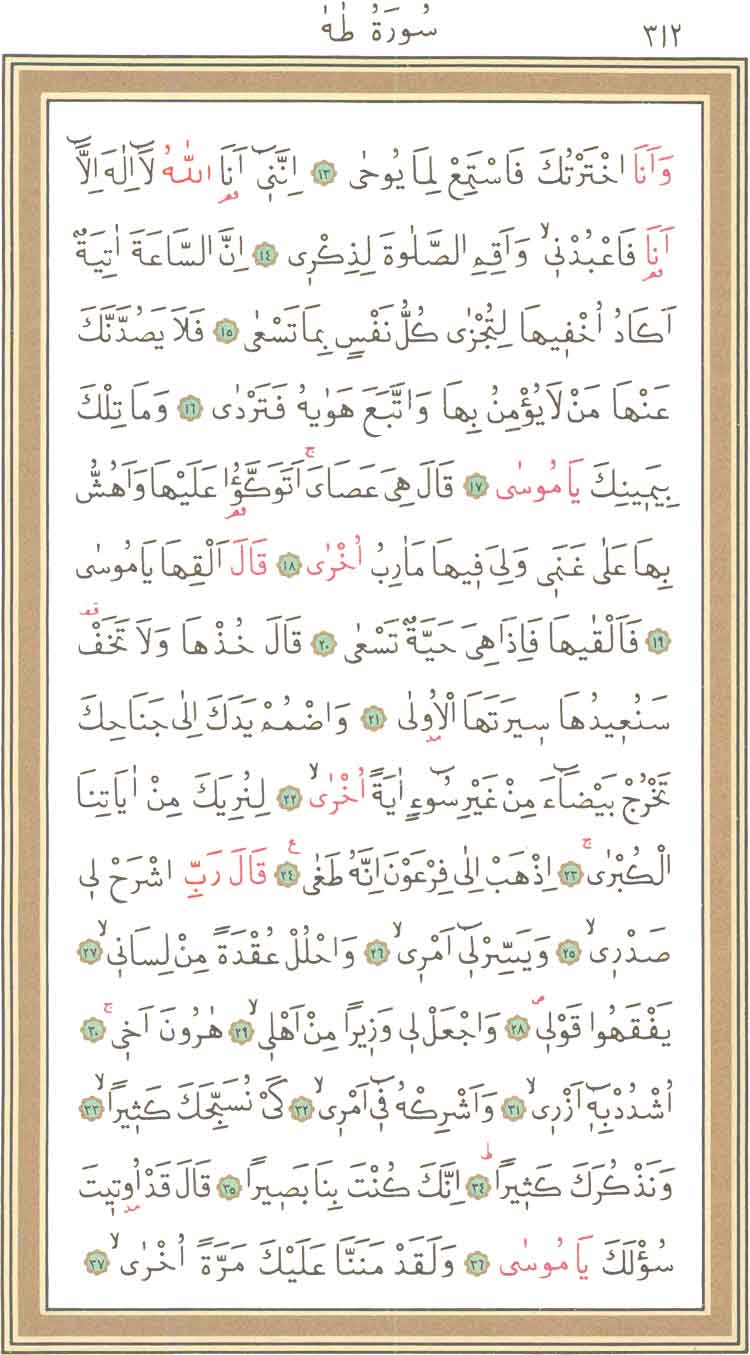 ٣١٢ سُورَةُ طٰهٰ
وَاَنَا اخْتَرْتُكَ فَاسْتَمِعْ لِمَا يُوحٰى ﴿١٣﴾ اِنَّنٖٓي اَنَا اللّٰهُ لَٓا اِلٰهَ اِلَّٓا
اَنَا۬ فَاعْبُدْنٖيۙ وَاَقِمِ الصَّلٰوةَ لِذِكْرٖي ﴿١٤﴾ اِنَّ السَّاعَةَ اٰتِيَةٌ
اَكَادُ اُخْفٖيهَا لِتُجْزٰى كُلُّ نَفْسٍ بِمَا تَسْعٰى ﴿١٥﴾ فَلَا يَصُدَّنَّكَ
عَنْهَا مَنْ لَا يُؤْمِنُ بِهَا وَاتَّبَعَ هَوٰيهُ فَتَرْدٰى ﴿١٦﴾ وَمَا تِلْكَ
بِيَمٖينِكَ يَا مُوسٰى ﴿١٧﴾ قَالَ هِيَ عَصَايَۚ اَتَوَكَّؤُ۬ا عَلَيْهَا وَاَهُشُّ
بِهَا عَلٰى غَنَمٖي وَلِيَ فٖيهَا مَاٰرِبُ اُخْرٰى ﴿١٨﴾ قَالَ اَلْقِهَا يَا مُوسٰى
﴿١٩﴾ فَاَلْقٰيهَا فَاِذَا هِيَ حَيَّةٌ تَسْعٰى ﴿٢٠﴾ قَالَ خُذْهَا وَلَا تَخَفْ
سَنُعٖيدُهَا سٖيرَتَهَا الْاُو۫لٰى ﴿٢١﴾ وَاضْمُمْ يَدَكَ اِلٰى جَنَاحِكَ
تَخْرُجْ بَيْضَٓاءَ مِنْ غَيْرِ سُٓوءٍ اٰيَةً اُخْرٰىۙ ﴿٢٢﴾ لِنُرِيَكَ مِنْ اٰيَاتِنَا
الْكُبْرٰىۚ ﴿٢٣﴾ اِذْهَبْ اِلٰى فِرْعَوْنَ اِنَّهُ طَغٰى ﴿٢٤﴾ ع قَالَ رَبِّ اشْرَحْ لٖي
صَدْرٖيۙ ﴿٢٥﴾ وَيَسِّرْ لٖٓي اَمْرٖيۙ ﴿٢٦﴾ وَاحْلُلْ عُقْدَةً مِنْ لِسَانٖيۙ ﴿٢٧﴾
يَفْقَهُوا قَوْلٖيۖ ﴿٢٨﴾ وَاجْعَلْ لٖي وَزٖيرًا مِنْ اَهْلٖيۙ ﴿٢٩﴾ هٰرُونَ اَخٖيۚ ﴿٣٠﴾
اُشْدُدْ بِهٖٓ اَزْرٖيۙ ﴿٣١﴾ وَاَشْرِكْهُ فٖٓي اَمْرٖيۙ ﴿٣٢﴾ كَيْ نُسَبِّحَكَ كَثٖيرًاۙ ﴿٣٣﴾
وَنَذْكُرَكَ كَثٖيرًاۜ ﴿٣٤﴾ اِنَّكَ كُنْتَ بِنَا بَصٖيرًا ﴿٣٥﴾ قَالَ قَدْ اُو۫تٖيتَ
سُؤْلَكَ يَا مُوسٰى ﴿٣٦﴾ وَلَقَدْ مَنَنَّا عَلَيْكَ مَرَّةً اُخْرٰىۙ ﴿٣٧﴾